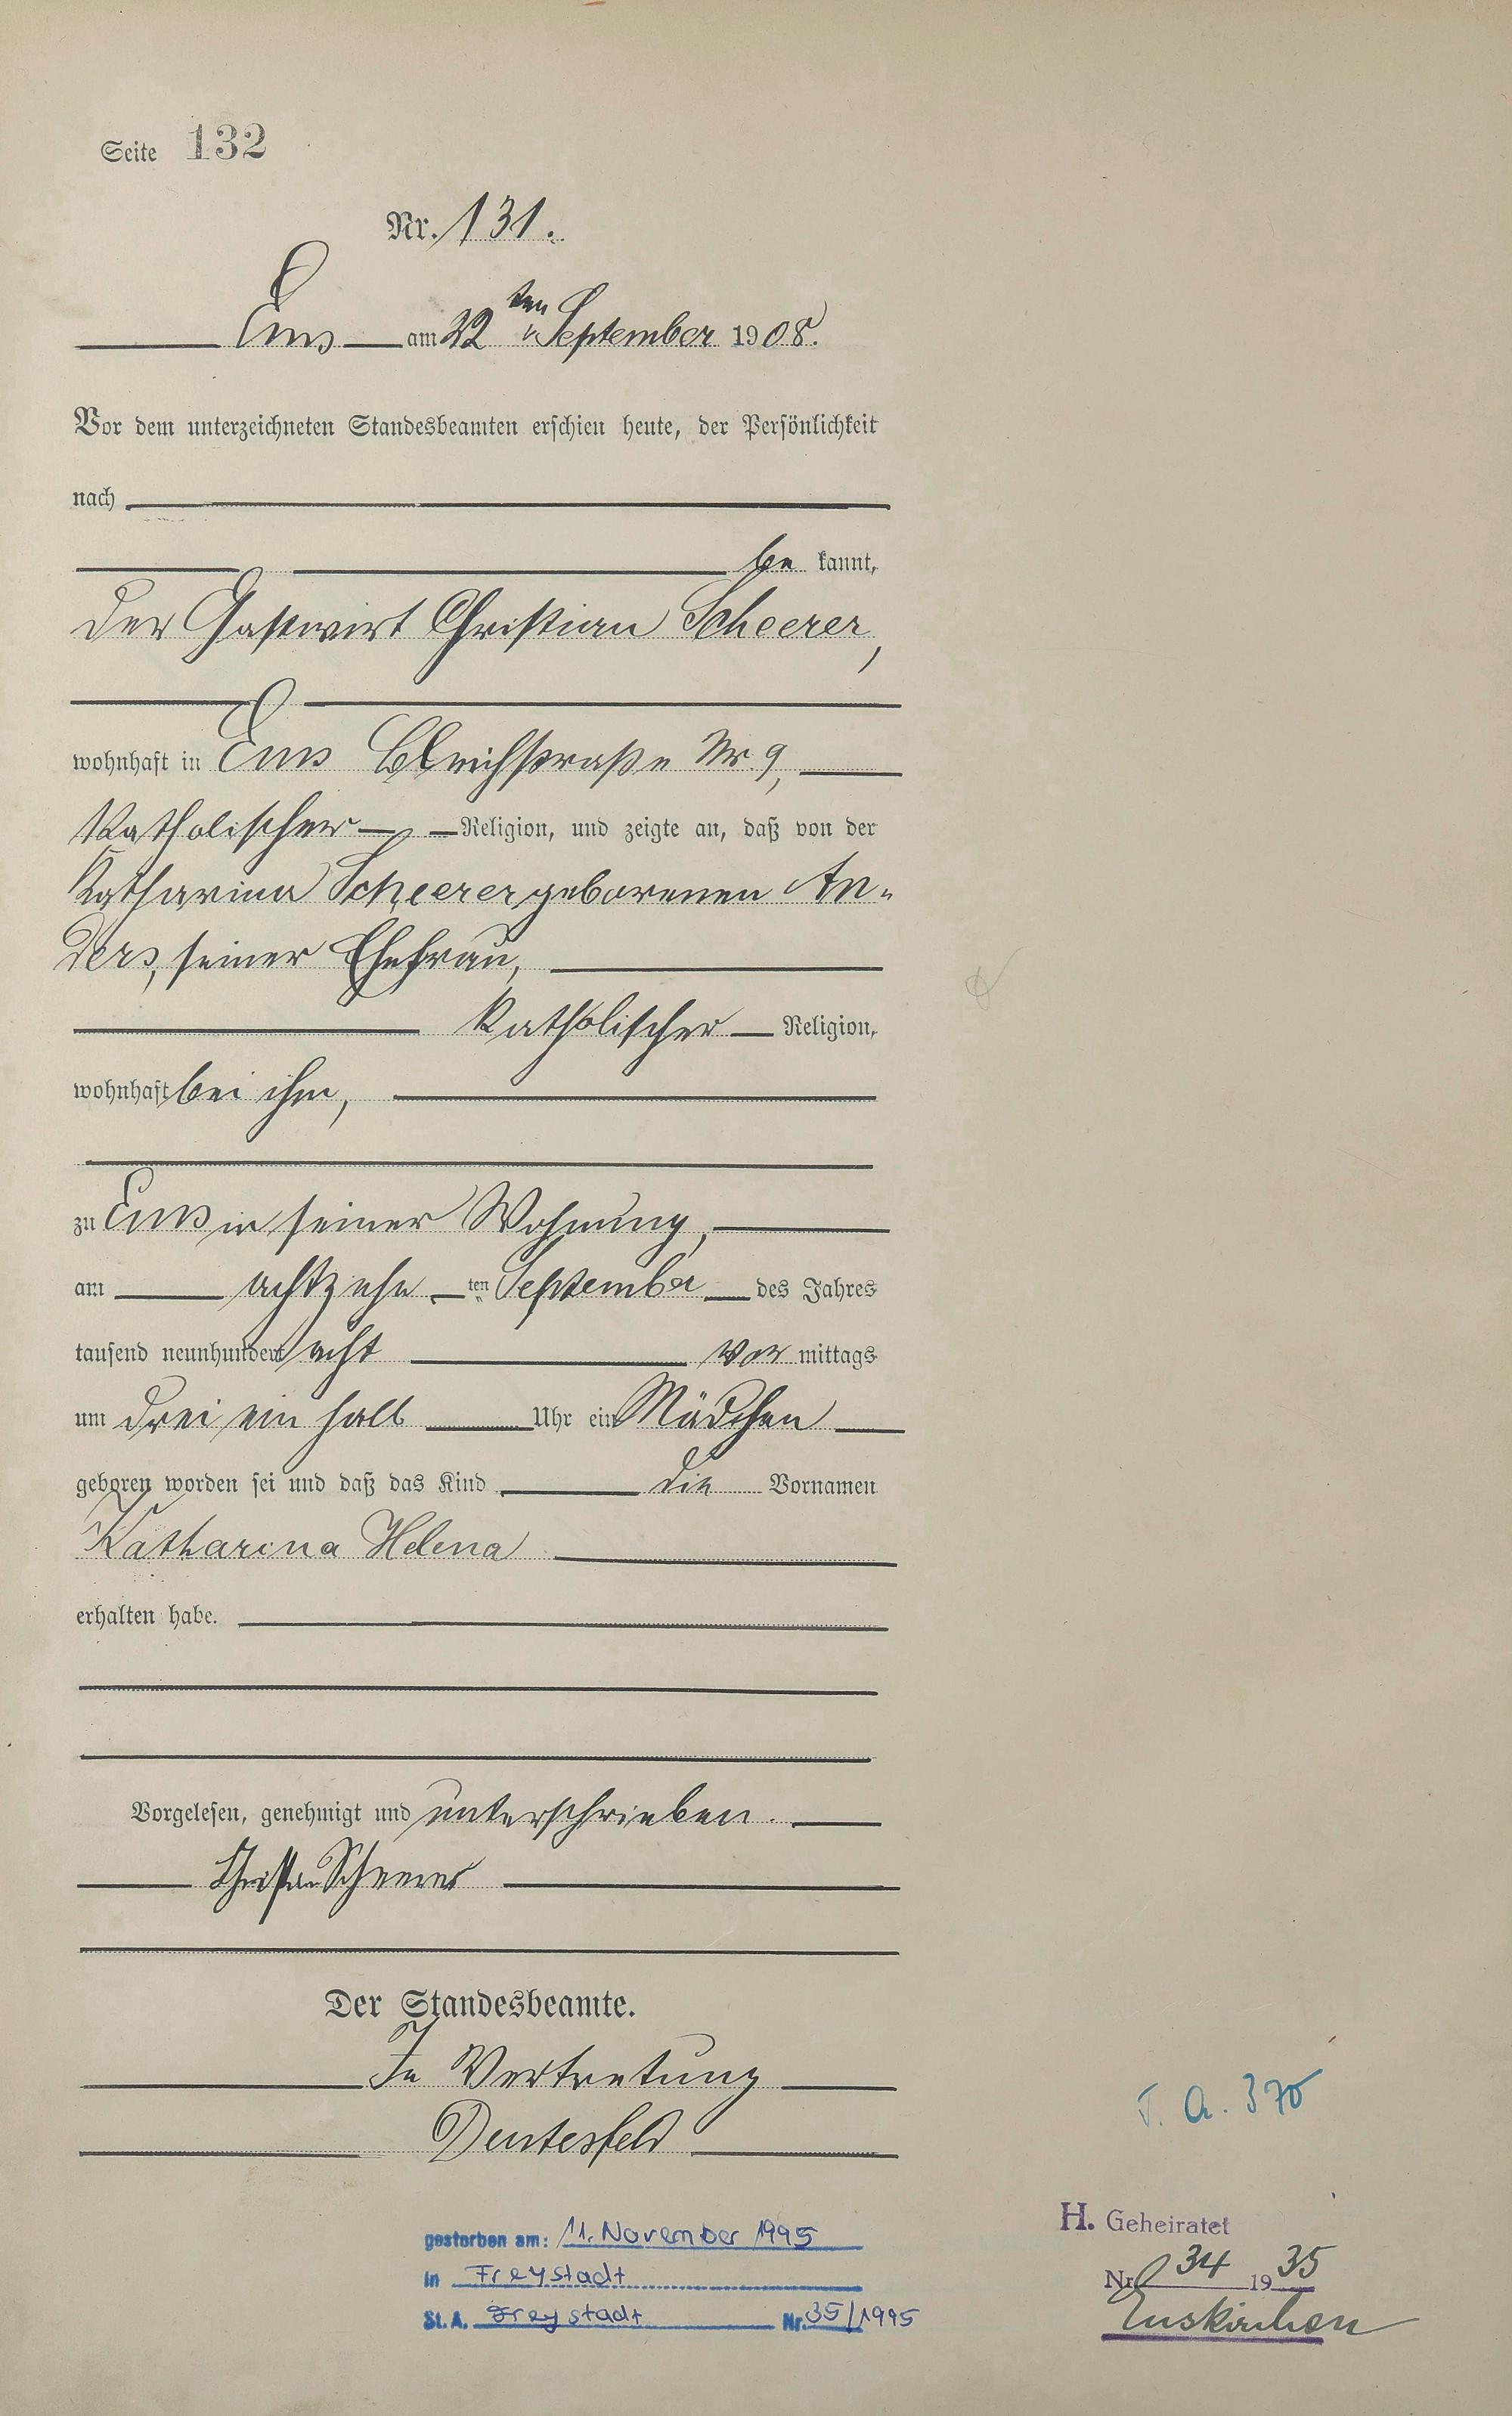 Seite 132
Nr. 131.
Ems am 22ten September 1908.
Vor dem unterzeichneten Standesbeamten erschien heute, der Persönlichkeit
nach
be kannt,
der Gastwirt Christian Scheerer,
wohnhaft in Ems Bleichstraße Nr. 9,
katholischer Religion, und zeigte an, daß von der
Katharina Scheerer geborenen An-
ders, seiner Ehefrau,
katholischer Religion,
wohnhaft bei ihm,
zu Ems in seiner Wohnung,
am achtzehn ten September des Jahres
tausend neunhundert acht vor mittags
um drei ein halb Uhr ein Mädchen
geboren worden sei und daß das Kind die Vornamen
Katharina Helena
erhalten habe.
Vorgelesen, genehmigt und unterschrieben.
Christian Scheerer
Der Standesbeamte.
In Vertretung
Deutesfeld
gestorben am: 11. November 1995
in Freystadt
St. A. Freystadt Nr. 35/1995
T. A. 370
H. Geheiratet
Nr. 34 1935
Euskirchen